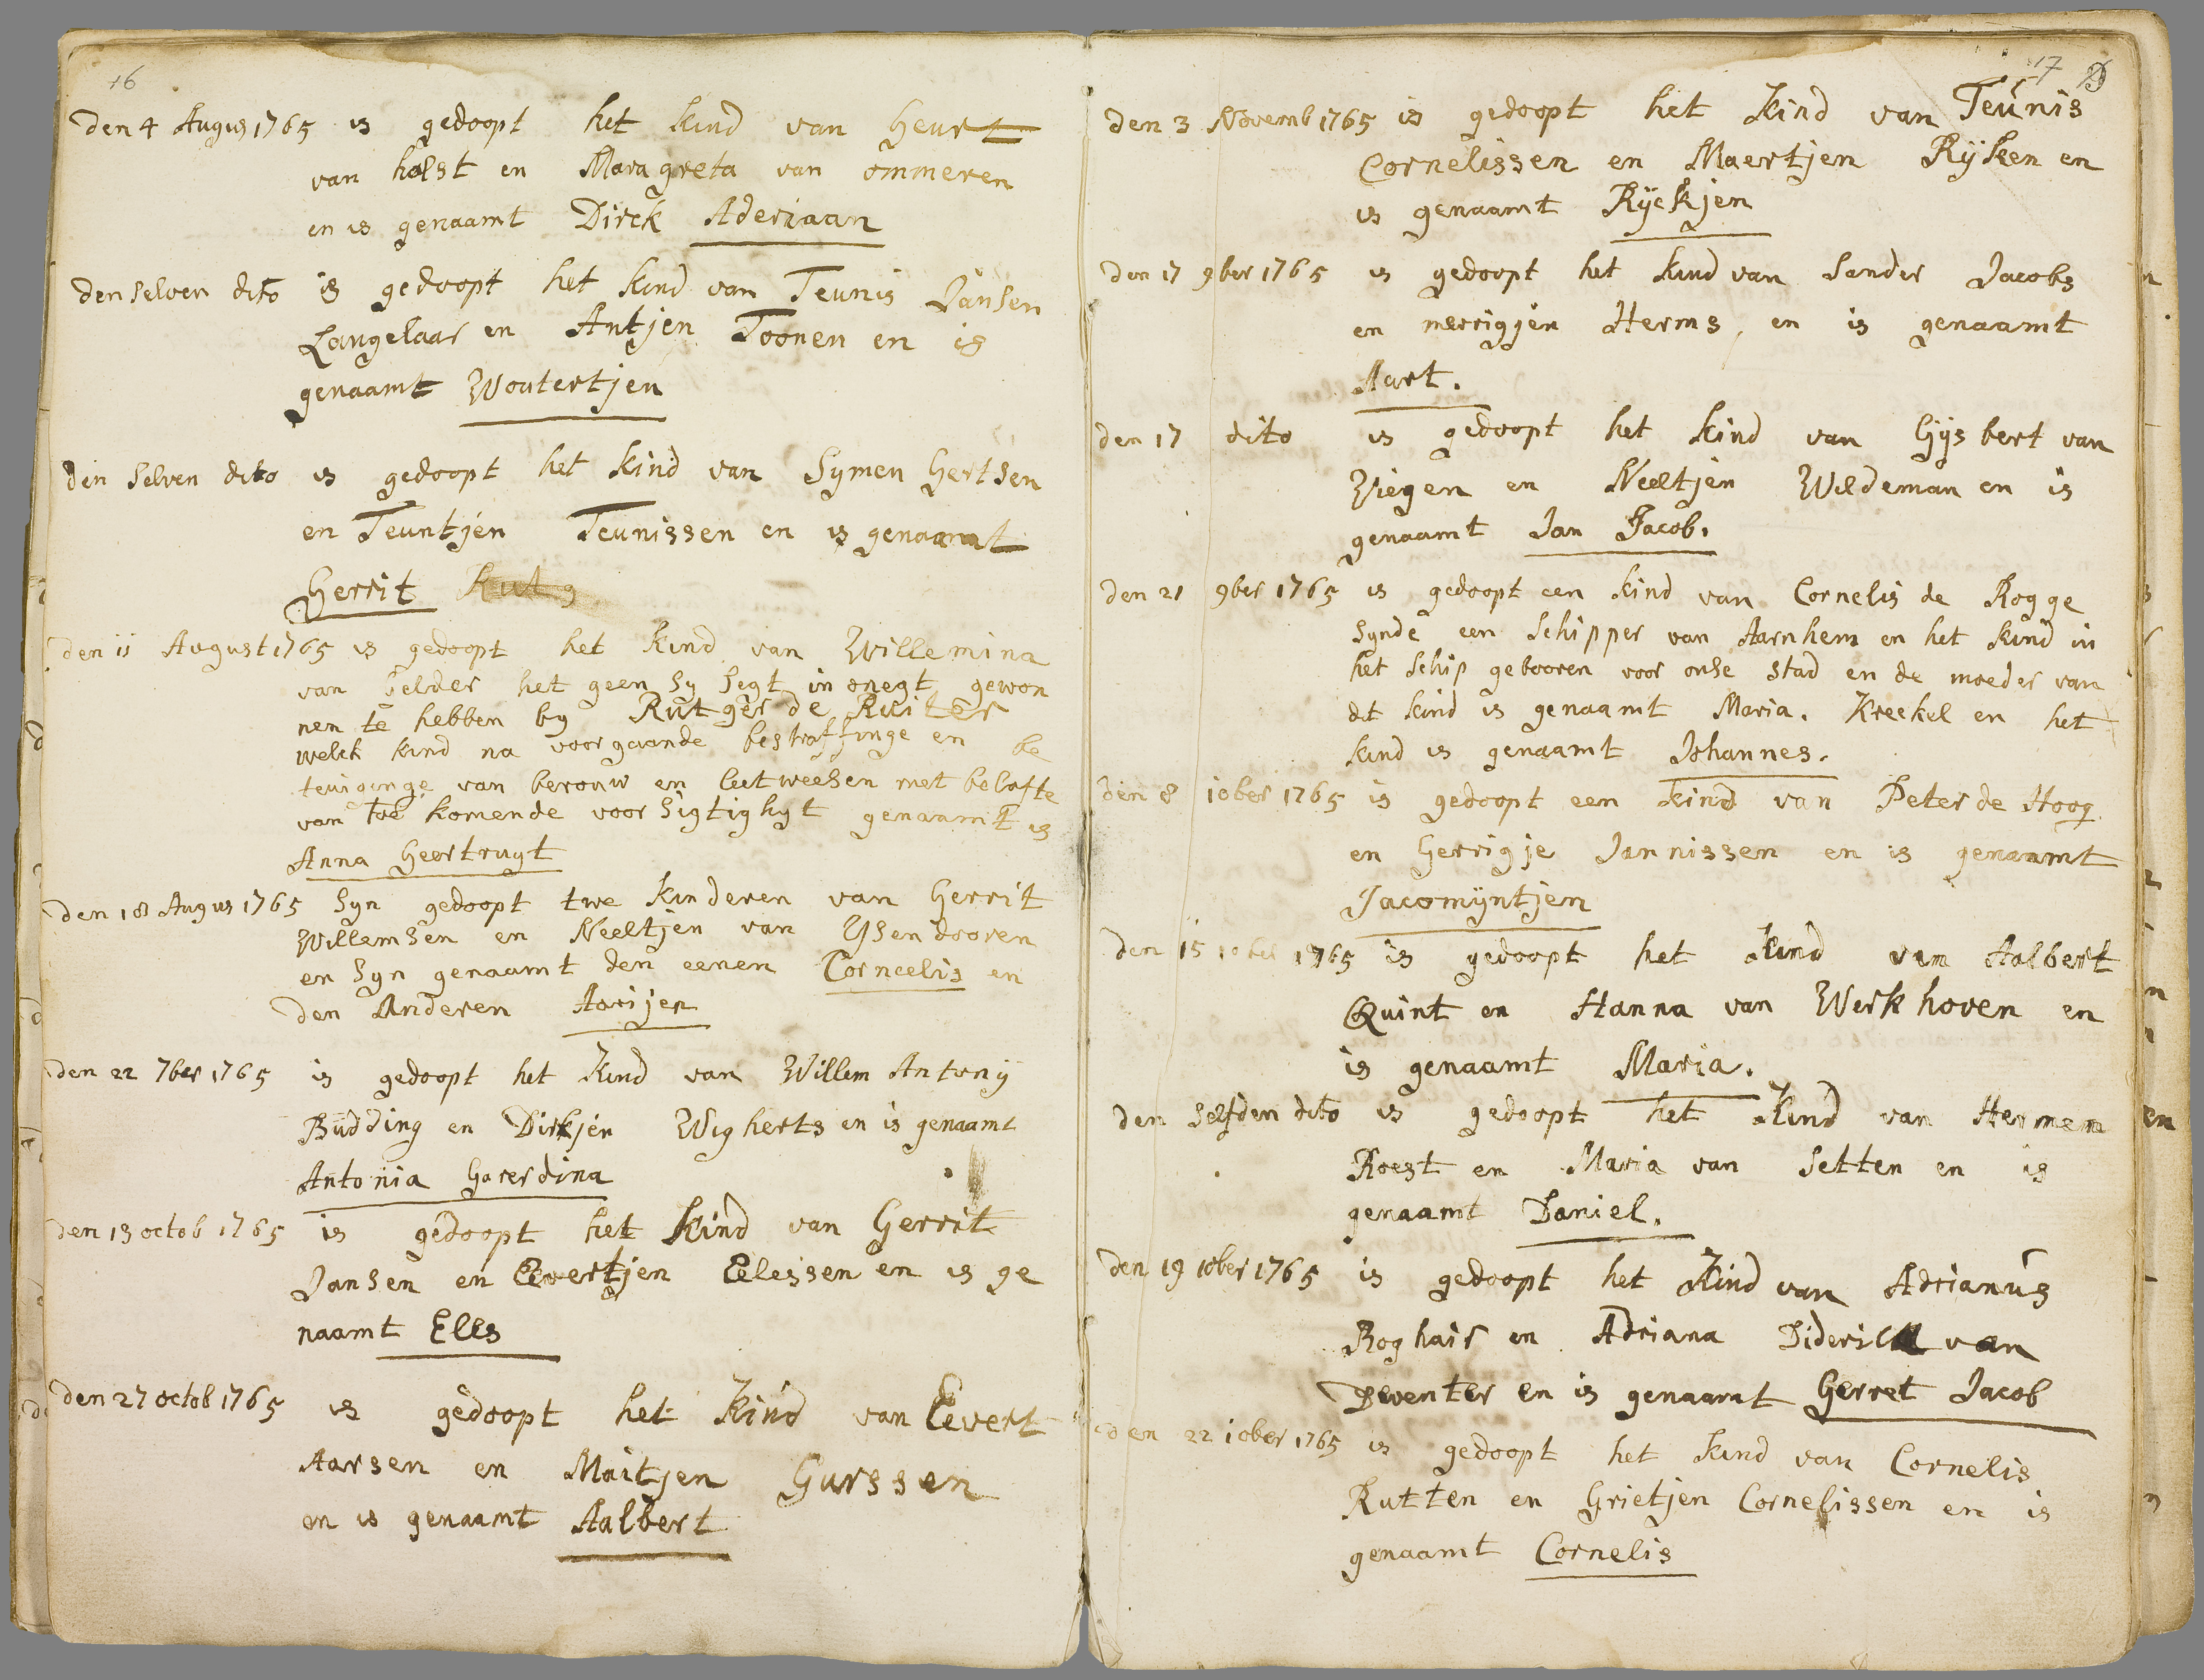 16
den 4 Augus 1765 is gedoopt het kind van Geurt
van halst en Maragreta van ommeren
en is genaamt Dirck Aderiaan
den selven dito is gedoopt het kind van Teunis Jansen
Langelaar en Antjen Toonen en is
genaamt Woutertjen
den selven dito is gedoopt het kind van Symen Gertsen
en Teuntjen Teunissen en is genaamt
Gerrit
den 11 August 1765 is gedoopt het kind van Willemina
van Gelder het geen sy segt in onegt gewon
nen te hebben by Rutger de Ruiter
welck kind na voorgaande bestraffinge en be
teuiginge van berouw en leetweesen met belofte
van toe komende voorsigtighyt genaamt is
Anna Geertruyt
den 18 Augus 1765 syn gedoopt twe kinderen van Gerrit
Willemsen en Neeltjen van Ysendooren
en syn genaamt den eenen Corneelis en
den Anderen Aarijen
den 22 7ber 1765 is gedoopt het kind van Willem Antonij
Büdding en Dirkjen Wigherts en is genaamt
Antonia Gaverdina
den 13 octob 1765 is gedoopt het kind van Gerrit
Jansen en Eevertjen Eelessen en is ge
naamt Elles
den 27 octob 1765 is gedoopt het kind van Eevert
Aarsen en Maitjen Gurssen
en is genaamt Aalbert
17
den 3 Novemb 1765 is gedoopt het kind van Teunis
Cornelissen en Maertjen Rijken en
is genaamt Ryckjen
den 17 9ber 1765 is gedoopt het kind van Sander Jacobs
en merrigjen Herms, en is genaamt
Aart.
den 17 dito is gedoopt het kind van Gijsbert van
Wiegen en Neeltjen Wildeman en is
genaamt Jan Jacob.
den 21 9ber 1765 is gedoopt een kind van Cornelis de Rogge
synde een schipper van Aarnhem en het kind in
het schip gebooren voor onse stad en de moeder van
dit kind is genaamt Maria. Kreekel en het
kind is genaamt Johannes.
den 8 10ber 1765 is gedoopt een kind van Peter de Hoog
en Gerrigje Jannissen en is genaamt
Jacomijntjen
den 15 10ber 1765 is gedoopt het kind van Aalbert
Quint en Hanna van Werkhoven en
is genaamt Maria.
den selfden dito is gedoopt het kind van Hermen
Roest en Maria van Setten en is
genaamt Daniel.
den 19 10ber 1765 is gedoopt het kind van Adrianus
Roghair en Adriana van
Deventer en is genaamt Gerret Jacob
den 22 10ber 1765 is gedoopt het kind van Cornelis
Rutten en Grietjen Cornelissen en is
genaamt Cornelis